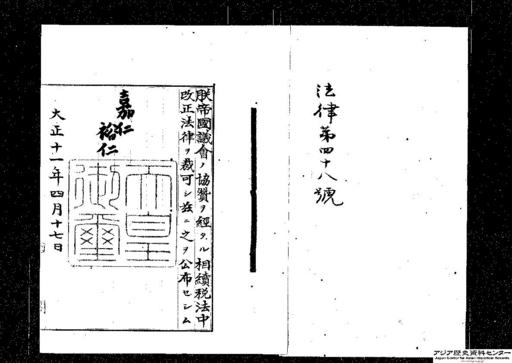 法律第四十八號
朕帝國議會ノ協贊ヲ經タル相續税法中
改正法律ヲ裁可シ茲ニ之ヲ公布セシム
嘉仁
裕仁
天皇御璽
大正十一年四月十七日
アジア歴史資料センター
Japan Center for Asian Historical Records